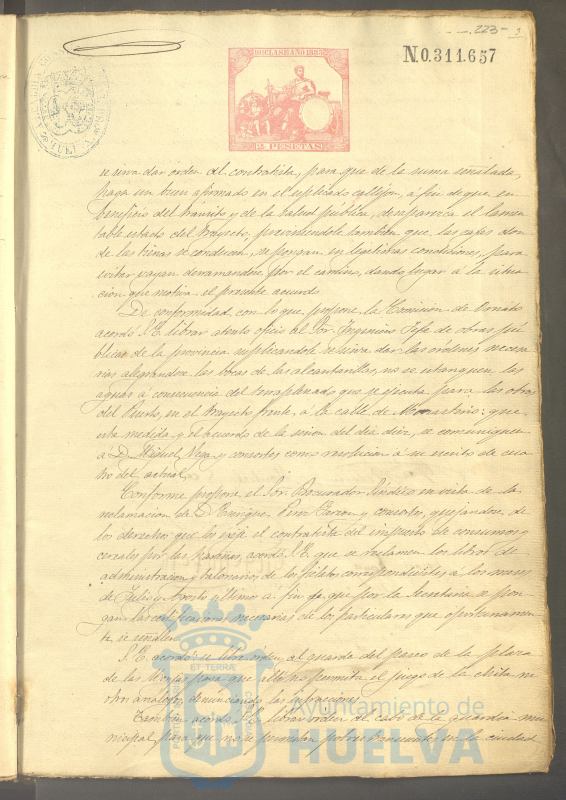 223
N.0.311.657
10ª CLASE AÑO 1883
se sirva dar órden al contratista, para que de la suma señalada,
haga un buen afirmado en el suplicado callejon, á fin de que en
beneficio del tránsito y de la salud pública, desaparezca el lamen
table estado del trayecto, previniéndole tambien que las cajas don
de las tierras se conducen, se pongan en legítimas condiciones, para
evitar vayan derramandose por el camino, dando lugar á la situa
cion que motiva el presente acuerdo
De conformidad con lo que propone la Comision de Ornato
acordó S.E. librar atento oficio al Sor. Ingeniero Jefe de obras pú
blicas de la provincia suplicandole se sirva dar las órdenes necesa
rias alegrandose las bocas de las alcantarillas, no se estanquen las
aguas á consecuencia del terraplenado que se ejecuta para las obras
del Puerto, en el trayecto frente, á la calle de que
esta medida y el acuerdo de la sesion del dia diez, se comuniquen
á D. Miguel Vega y consortes como resolucion á su escrito de cua
tro del actual.
Conforme propone el Sor. Procurador Síndico en vista de la
reclamacion de D. Enrique Perez Garzon y consortes, quejandose de
los derechos que les exije el contratista del impuesto de consumos y
cereales por las harinas, acordó S.E. que se reclamen los libros de
administracion y talonario, de los fielatos correspondientes á los meses
de Julio y Agosto último á fin de que por la Secretaria se pon
gan las certificaciones necesarias de los particulares que oportunamen
te se señalen.
S.E. acordó se libre orden al guarda del paseo de la plaza
de las Monjas para que allí no permita el juego de la chita ni
otros análogos, denunciando las infracciones
Tambien acordó S.E. librar orden al cabo de la guardia mu
nicipal, para que no se permitan en la ciudad
ET TERRÆ
Ayuntamiento de
HUELVA